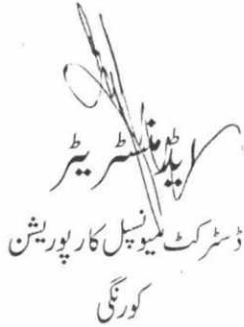 ایڈمنسٹریٹر
ڈسٹرکٹ میونسپل کارپوریشن
کورنگی